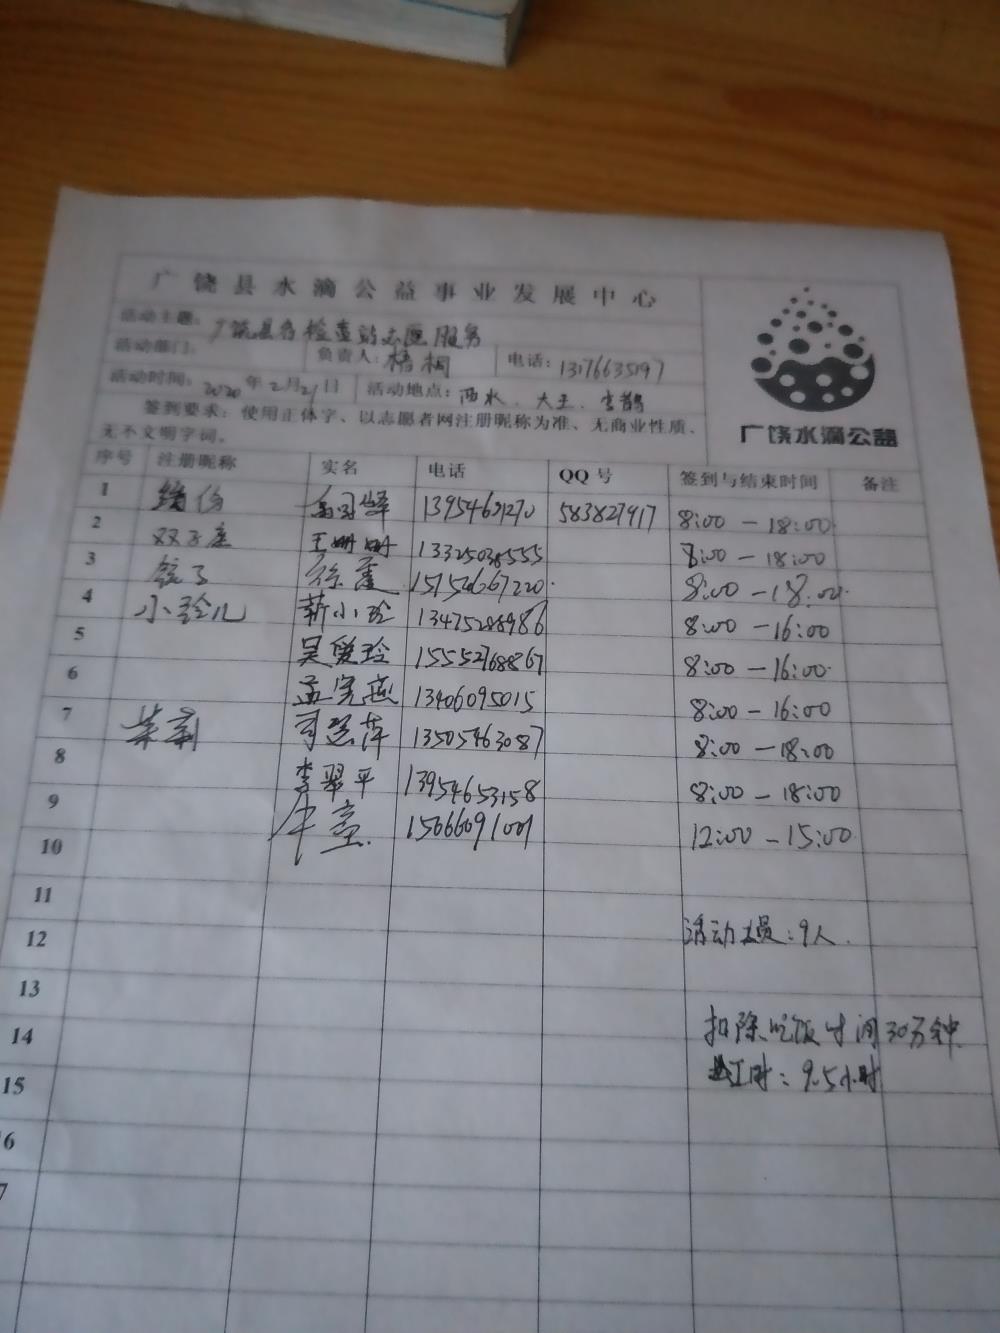 广饶县水滴公益事业发展中心
活动主题：广饶县各检查站志愿服务
活动部门： 负责人：梧桐 电话：13176635197
活动时间：2020年2月21日 活动地点：西水、大王、李鹊
签到要求：使用正体字、以志愿者网注册昵称为准、无商业性质、
无不文明字词。
广饶水滴公益
序号 注册昵称 实名 电话 QQ号 签到与结束时间 备注
1 583827917 8:00-18:00
2 双子座 王珊珊 13325038555 8:00-18:00
3 徐霞 151526667220 8:00-18:00
4 小玲儿 靳小玲 13475288986 8:00-16:00
5 吴爱玲 15552768867 8:00-16:00
6 孟宪燕 13406095015 8:00-16:00
7 13505463087 8:00-18:00
8 李翠平 13954653158 8:00-18:00
9 15066091001 12:00-15:00
10
11
12 活动 员：9人.
13
14 扣除吃饭时间30分钟
15 工时：9.5小时